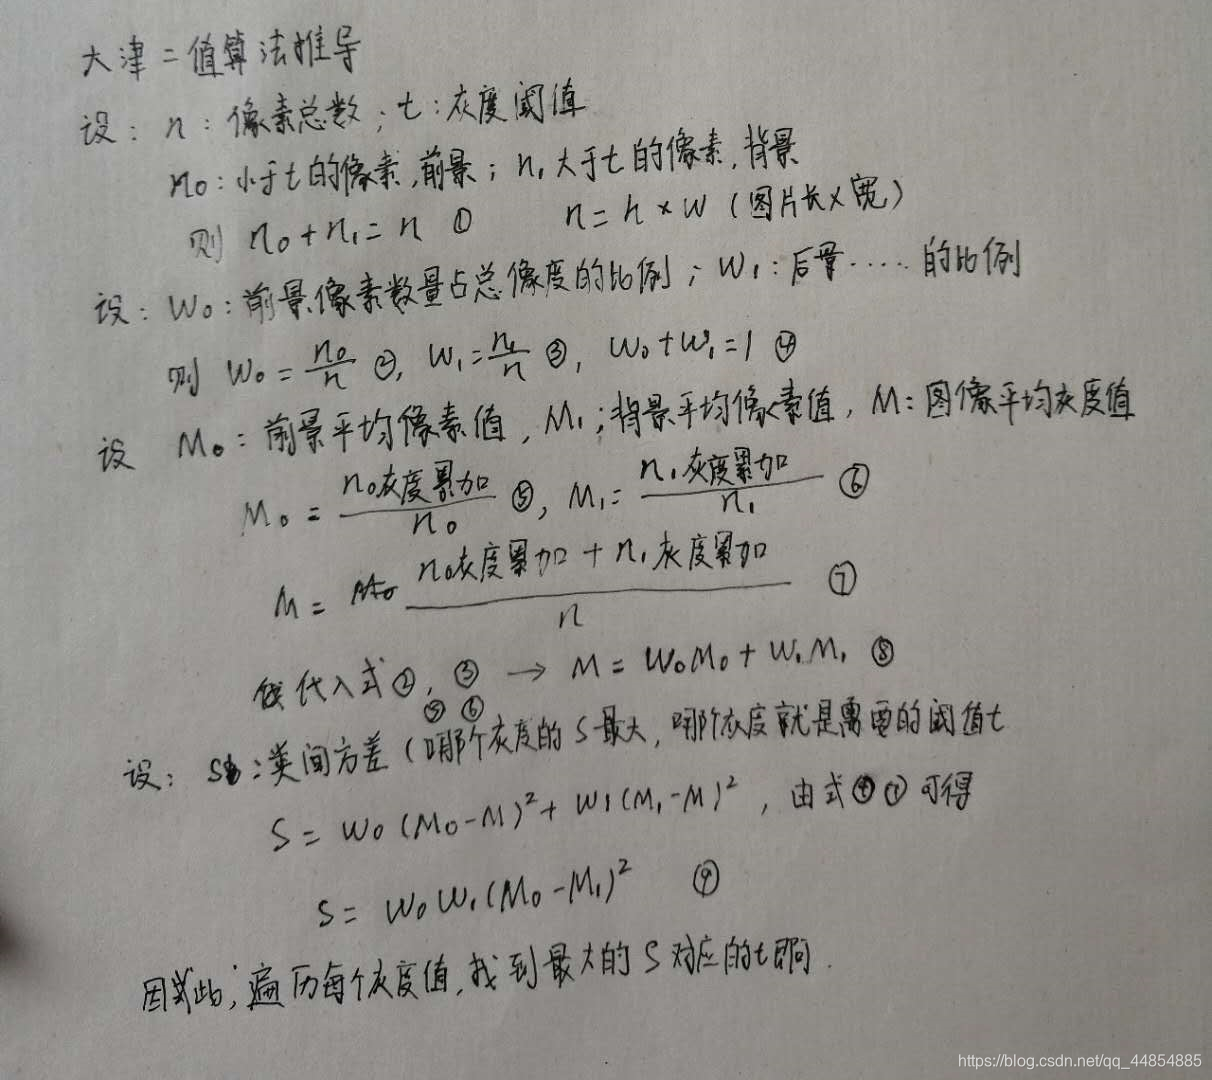 大津二值算法推导
设：n：像素总数；t：灰度阈值
n₀：小于t的像素，前景；n₁大于t的像素，背景
则 n₀+n₁=n ① n=h×w（图片长×宽）
设：W₀：前景像素数量占总像度的比例；W₁：后景……的比例
则 W₀=n₀/n ②，W₁=n₁/n ③，W₀+W₁=1 ④
设 M₀：前景平均像素值，M₁；背景平均像素值，M：图像平均灰度值
M₀=n₀灰度累加/n₀ ⑤，M₁=n₁灰度累加/n₁ ⑥
M=(n₀灰度累加+n₁灰度累加)/n ⑦
代入式②，③ → M=W₀M₀+W₁M₁ ⑧
⑤ ⑥
设：S：类间方差（哪个灰度的S最大，哪个灰度就是需要的阈值t
S=W₀(M₀-M)²+W₁(M₁-M)²，由式④ 可得
S=W₀W₁(M₀-M₁)² ⑨
因此；遍历每个灰度值，找到最大的S对应的t即可.
https://blog.csdn.net/qq_44854885